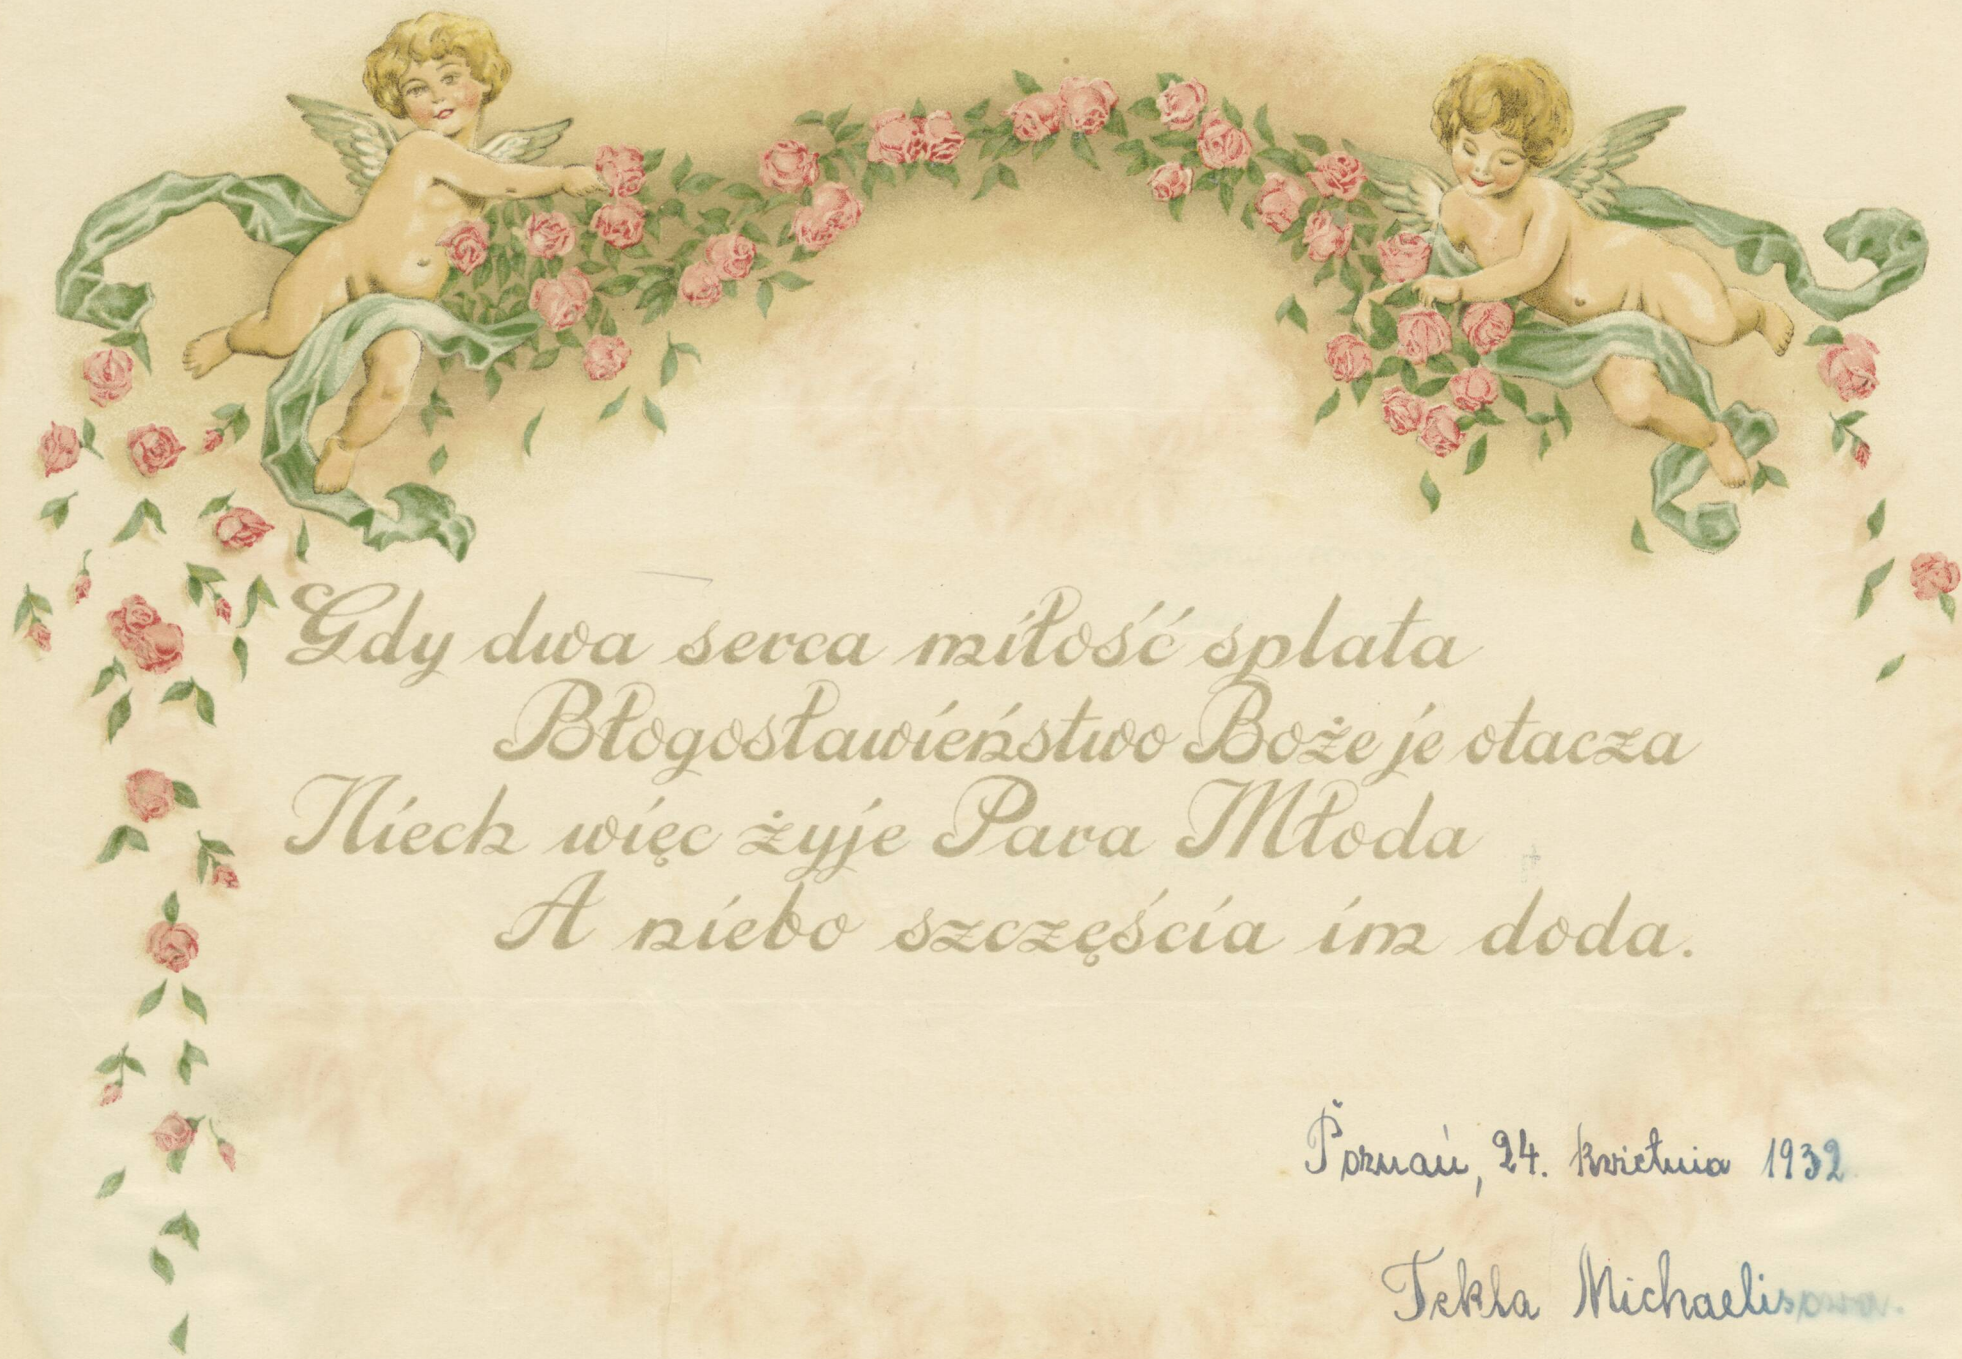 Gdy dwa serca miłość splata
Błogosławieństwo Boże je otacza
Niech więc żyje Para Młoda
A niebo szczęścia im doda.
Poznań, 24. kwietnia 1932
Tekla Michaelisowa.